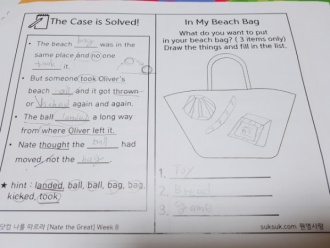 The Case is Solved!
• The beach bag was in the
same place and no one
took it.
• But someone took Oliver's
beach ball and it got thrown
or kicked again and again.
• The ball landed a long way
from where Oliver left it.
• Nate thought the ball had
moved, not the bag.
★ hint : landed, ball, ball, bag, bag,
kicked, took
닷컴 나를 따르라 [Nate the Great] Week 8
In My Beach Bag
What do you want to put
in your beach bag? ( 3 items only)
Draw the things and fill in the list.
1. Toy
2.
3.
suksuk.com